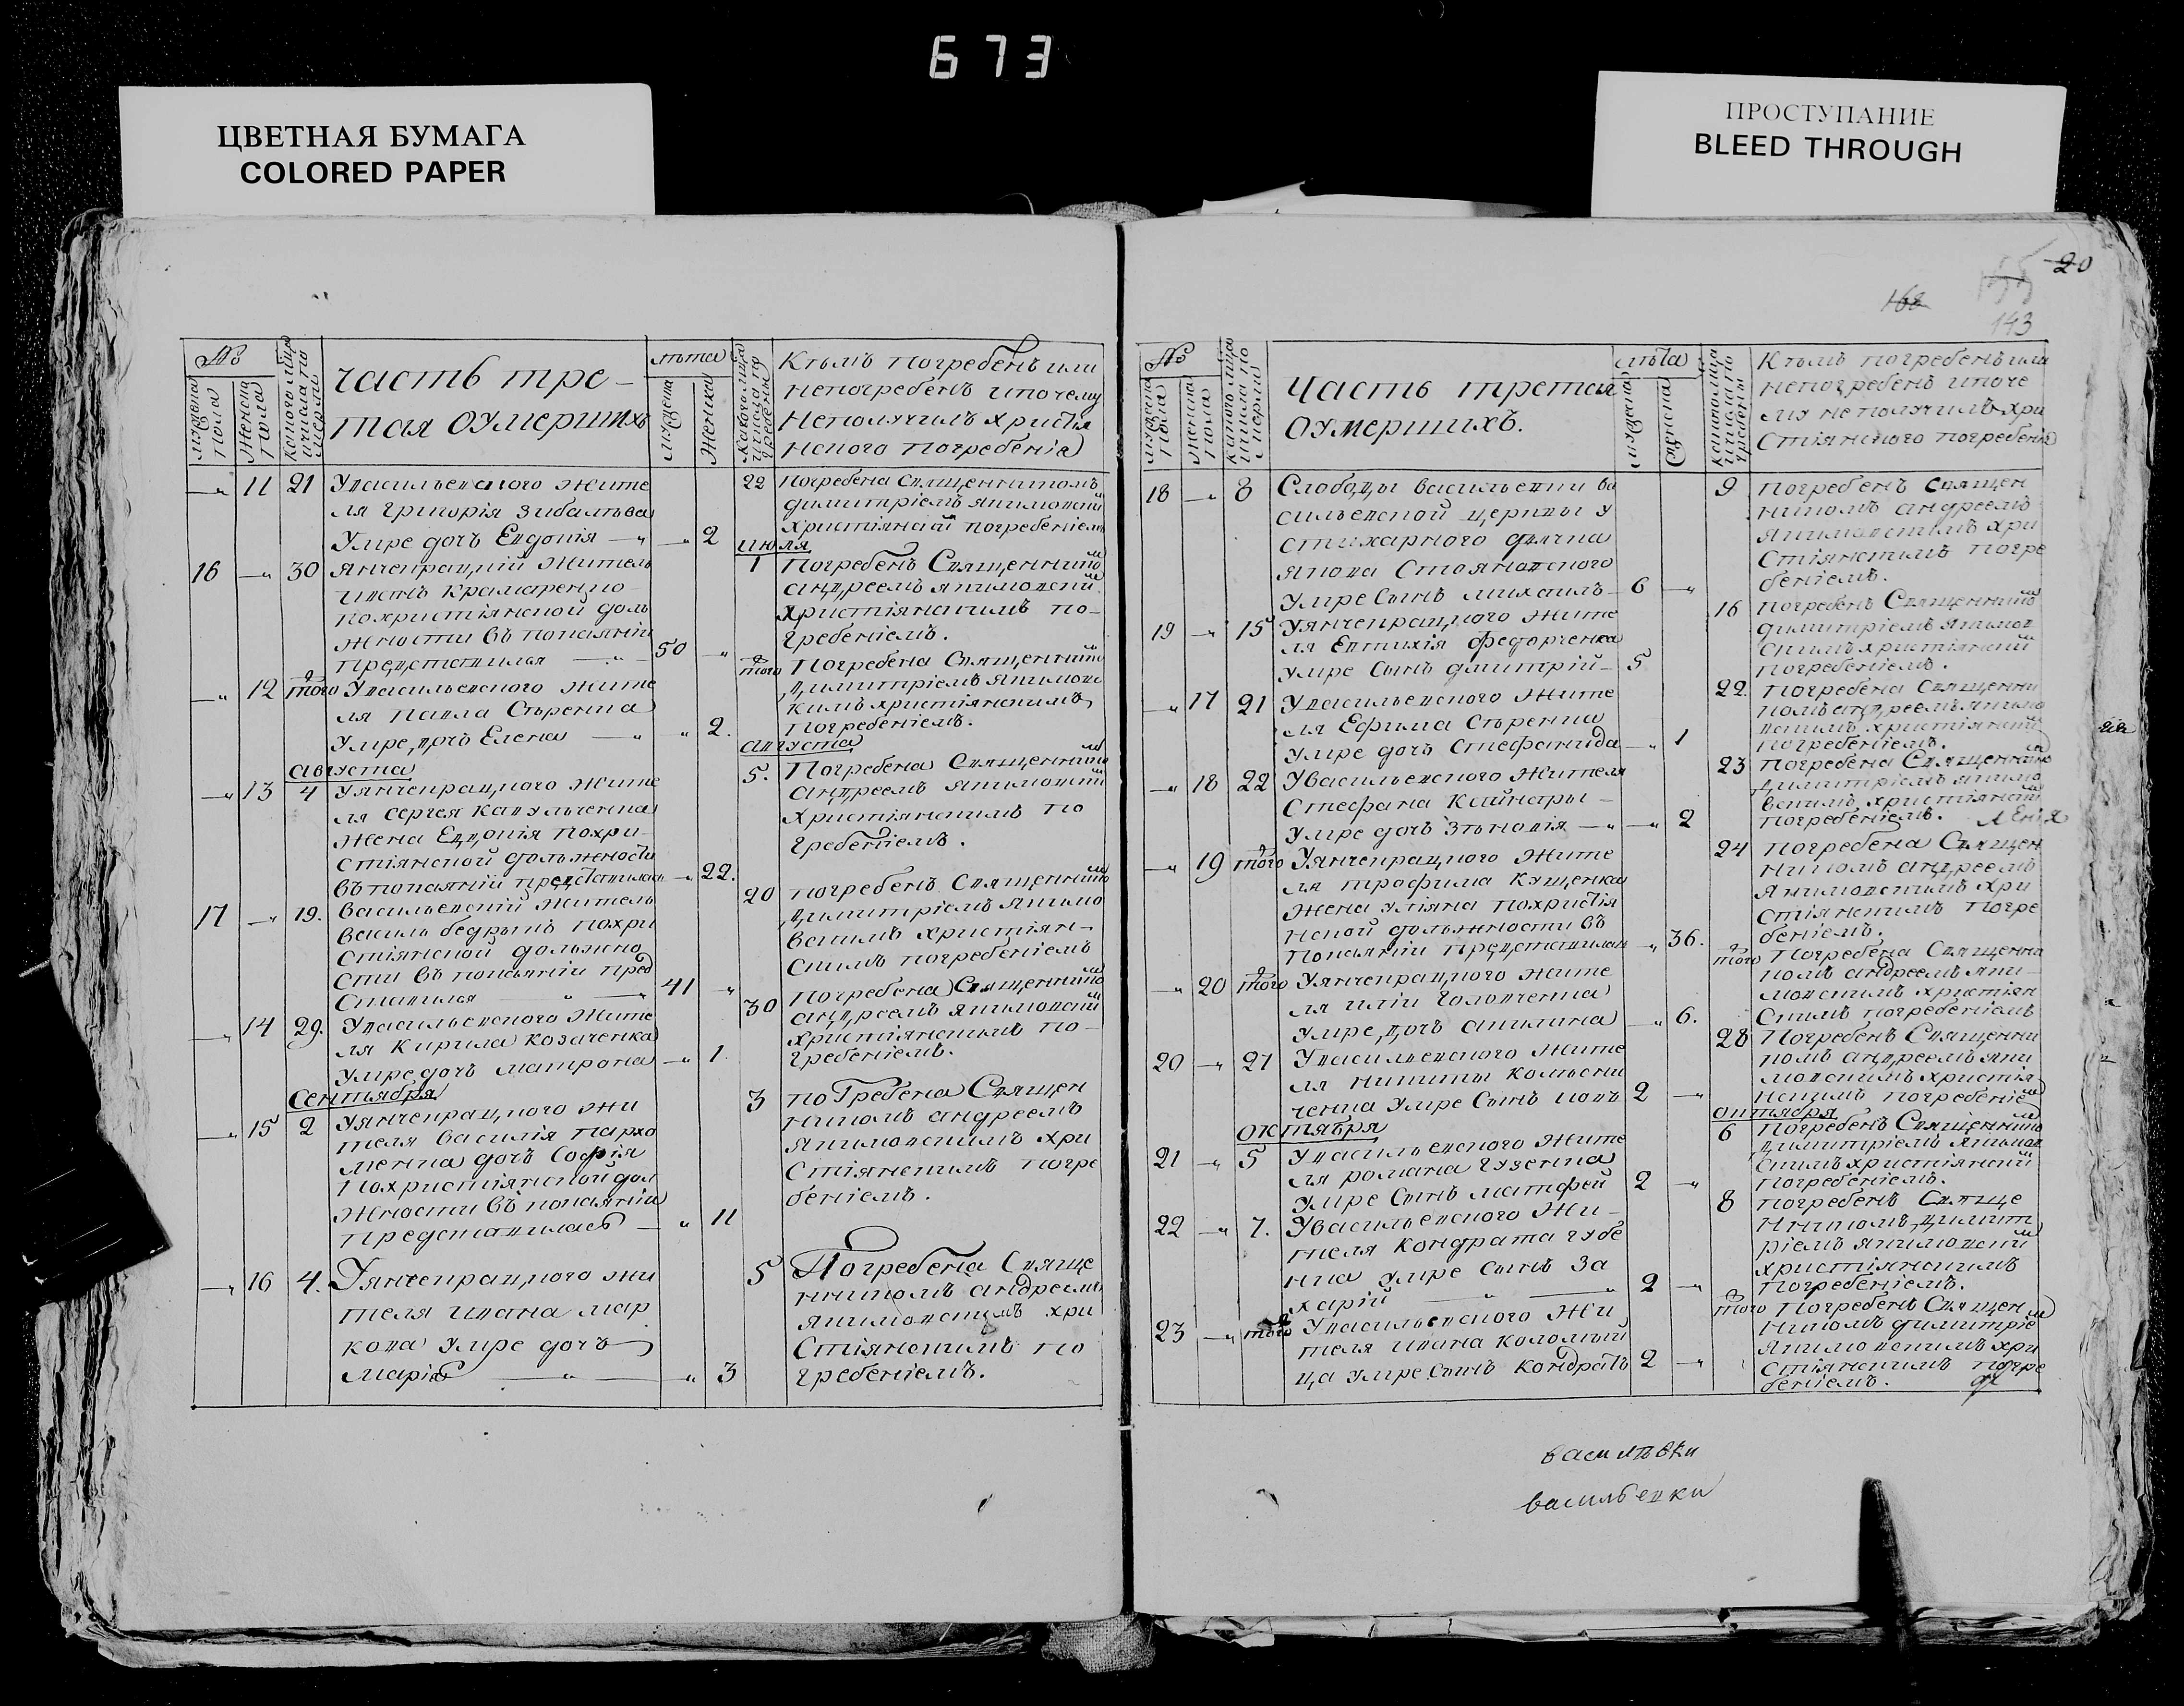 673
ЦВЕТНАЯ БУМАГА
COLORED PAPER
ПРОСТУПАНИЕ
BLEED THROUGH
№
мужеска пола
Женска пола
Которого Мѣсяца и числа по мерли
часть тре-
тая оумершихъ
лѣта
мужеска
Женска
Которого Мѣсяца и числа по гребены
Кѣмъ погребенъ или
непогребенъ ипочему
Неполучилъ христія
нского погребенія
— 11 21 Увасильевского жите
ля григорія
Умре дочъ Евдокія — 2
22 погребена священникомъ
димитріемъ якимовски
христіянски погребеніемъ
16 — 30 янченрацкій житель
игнатъ крамаренко
похристіянской дол
жности въ покаянніи
представился — 50 —
июля
1 Погребенъ Священнико
андреемъ якимовски
христіянскимъ по-
гребеніемъ.
— 12 того Увасильевского жите
ля павла Стъренка
Умре дочъ Елена — 2.
того Погребена Священнико
димитріемъ якимовс
кимъ христіянскимъ
погребеніемъ.
августа
— 13 4 Уянченрацкого жите
ля сергея капульченка
жена Евдокія похри-
стіянской должности
въ покаянніи представилась — 22.
августа
5. Погребена Священнико
андреемъ якимовски
Христіянскимъ по
гребеніемъ.
17 — 19. васильевскій житель
василь бедрынъ похри
стіянской должно
сти въ покаянніи пред
ставился — 41 —
20 погребенъ Священнико
димитріемъ якимо
вскимъ христіян-
скимъ погребеніемъ
— 14 29. Увасильевского жите
ля кирила козаченка
умре дочъ матрона — 1
30 погребена Священнико
андреемъ якимовски
христіянскимъ по-
гребеніемъ.
Сентября
— 15 2 Уянченрацкого жи
теля василія пархо
менка дочъ Софія
похристіянской дол
жности въ покаянніи
представилась — 11
3 погребена Священ
никомъ андреемъ
якимовскимъ хри
стіянскимъ погре
беніемъ.
— 16 4. Уянченрацкого жи
теля ивана мар
кова Умре дочъ
марія — 3
5 Погребена Священ
никомъ андреемъ
якимовскимъ хри
стіянскимъ по
гребеніемъ.
20
168
143
№
мужеска пола
женска пола
которого мѣсяца и числа по мерли
часть третая
оумершихъ.
лѣта
мужеска
женска
которого мѣсяца и числа по гребены
Кѣмъ погребенъ или
непогребенъ ипоче
му неполучилъ хри
стіянского погребенія
18 — 8 Слободы васильевки ва
сильевской церквы у
стихарного дячка
якова Стояновского
умре сынъ михаилъ 6 —
9 погребенъ священ
никомъ андреемъ
якимовскимъ хри
стіянскимъ погре
беніемъ.
19 — 15 Уянченрацкого жите
ля Евтихія федорченка
умре сынъ дмитрій 5
16 погребенъ Священнико
димитріемъ якимов
скимъ христіянски
погребеніемъ.
— 17 21 Увасильевского жите
ля Ефима Стъренка
умре дочъ стефанида — 1
22. погребена Священни
комъ андреемъ якимо
вскимъ христіянски
погребеніемъ.
— 18 22 Увасильевского жителя
стефана кайнары
умре дочъ Зѣновія — 2
23 погребена Священнико
димитріемъ якимо
вскимъ христіянски
погребеніемъ.
— 19 того Уянченрацкого жите
ля трофима Кущенка
жена уліяна похристія
нской должности въ
покаянніи представилась — 36.
24 погребена Священ
никомъ андреемъ
якимовскимъ хри
стіянскимъ погре
беніемъ.
— 20 того Уянченрацкого жите
ля иліи головченка
умре дочъ акилина — 6.
того Погребена Священни
комъ андреемъ яки-
мовскимъ христіян
скимъ погребеніемъ
20 — 27 Увасильевского жите
ля никиты колесни
ченка умре сынъ іовъ 2 —
28 Погребенъ Священни
комъ андреемъ яки
мовскимъ христія
нскимъ погребеніе
октября
21 — 5 Увасильевского жите
ля романа гузенка
умре сынъ матфей 2 —
октября
6 погребенъ Священнико
димитріемъ якимов
скимъ христіянски
погребеніемъ.
22 — 7. Увасильевского жи-
теля кондрата губе
нка умре сынъ за
харій 2 —
8 погребенъ Свяще
нникомъ димит
ріемъ якимовски
христіянскимъ
погребеніемъ.
23 — того Увасильевского жи
теля ивана коломый
ца умре сынъ кондратъ 2 —
того погребенъ Священ
никомъ димитріе
якимовскимъ хри
стіянскимъ погре
беніемъ.
васильевки